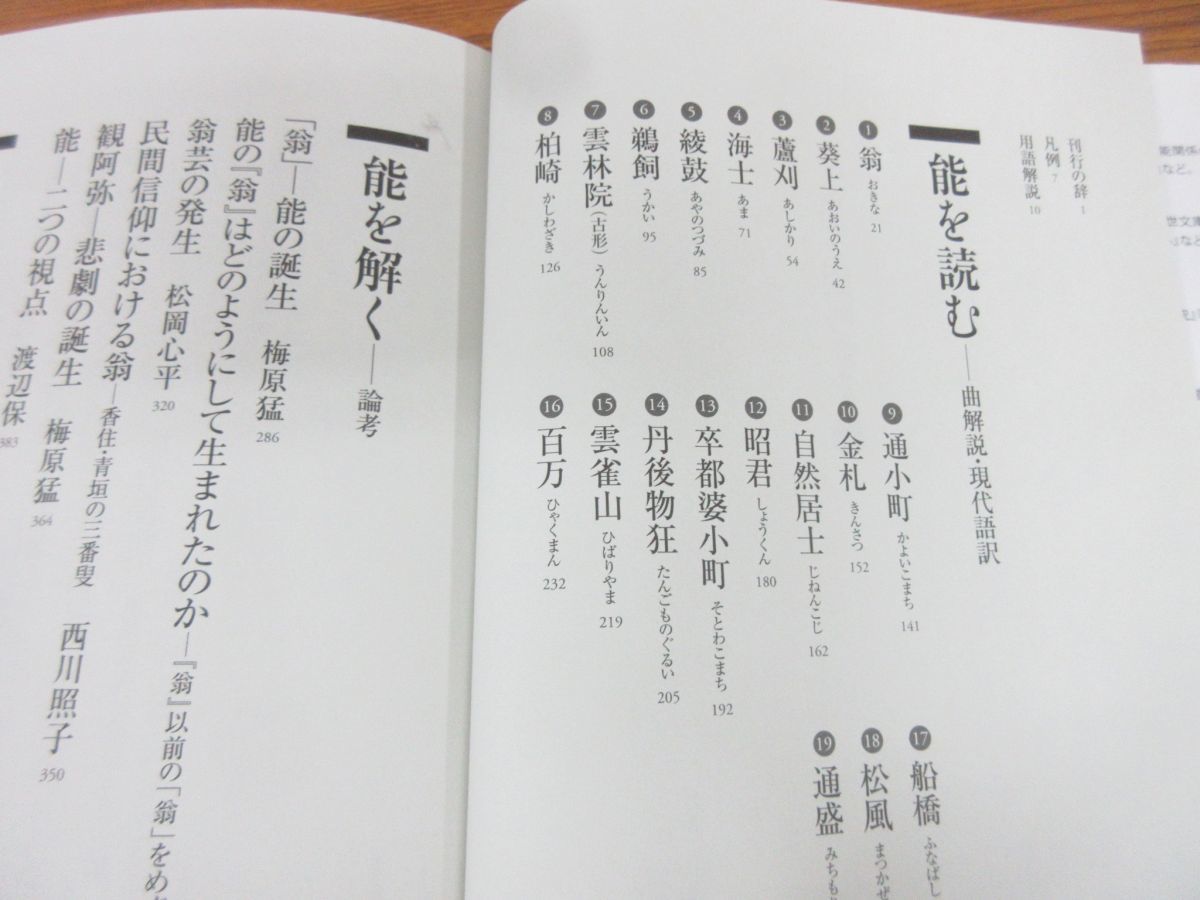 刊行の辞 1
凡例 7
用語解説 10
能を読む——曲解説・現代語訳
❶ 翁 おきな 21
❷ 葵上 あおいのうえ 42
❸ 蘆刈 あしかり 54
❹ 海士 あま 71
❺ 綾鼓 あやのつづみ 85
❻ 鵜飼 うかい 95
❼ 雲林院(古形) うんりんいん 108
❽ 柏崎 かしわざき 126
❾ 通小町 かよいこまち 141
❿ 金札 きんさつ 152
⓫ 自然居士 じねんこじ 162
⓬ 昭君 しょうくん 180
⓭ 卒都婆小町 そとわこまち 192
⓮ 丹後物狂 たんごものぐるい 205
⓯ 雲雀山 ひばりやま 219
⓰ 百万 ひゃくまん 232
⓱ 船橋 ふなばし
⓲ 松風 まつかぜ
⓳ 通盛 みちも
能を解く——論考
「翁」—能の誕生 梅原猛 286
能の『翁』はどのようにして生まれたのか—『翁』以前の「翁」をめ
翁芸の発生 松岡心平 320
民間信仰における翁—香住・青垣の三番叟 西川照子 350
観阿弥—悲劇の誕生 梅原猛 364
能—二つの視点 渡辺保 383
能関係
など。
世文
など